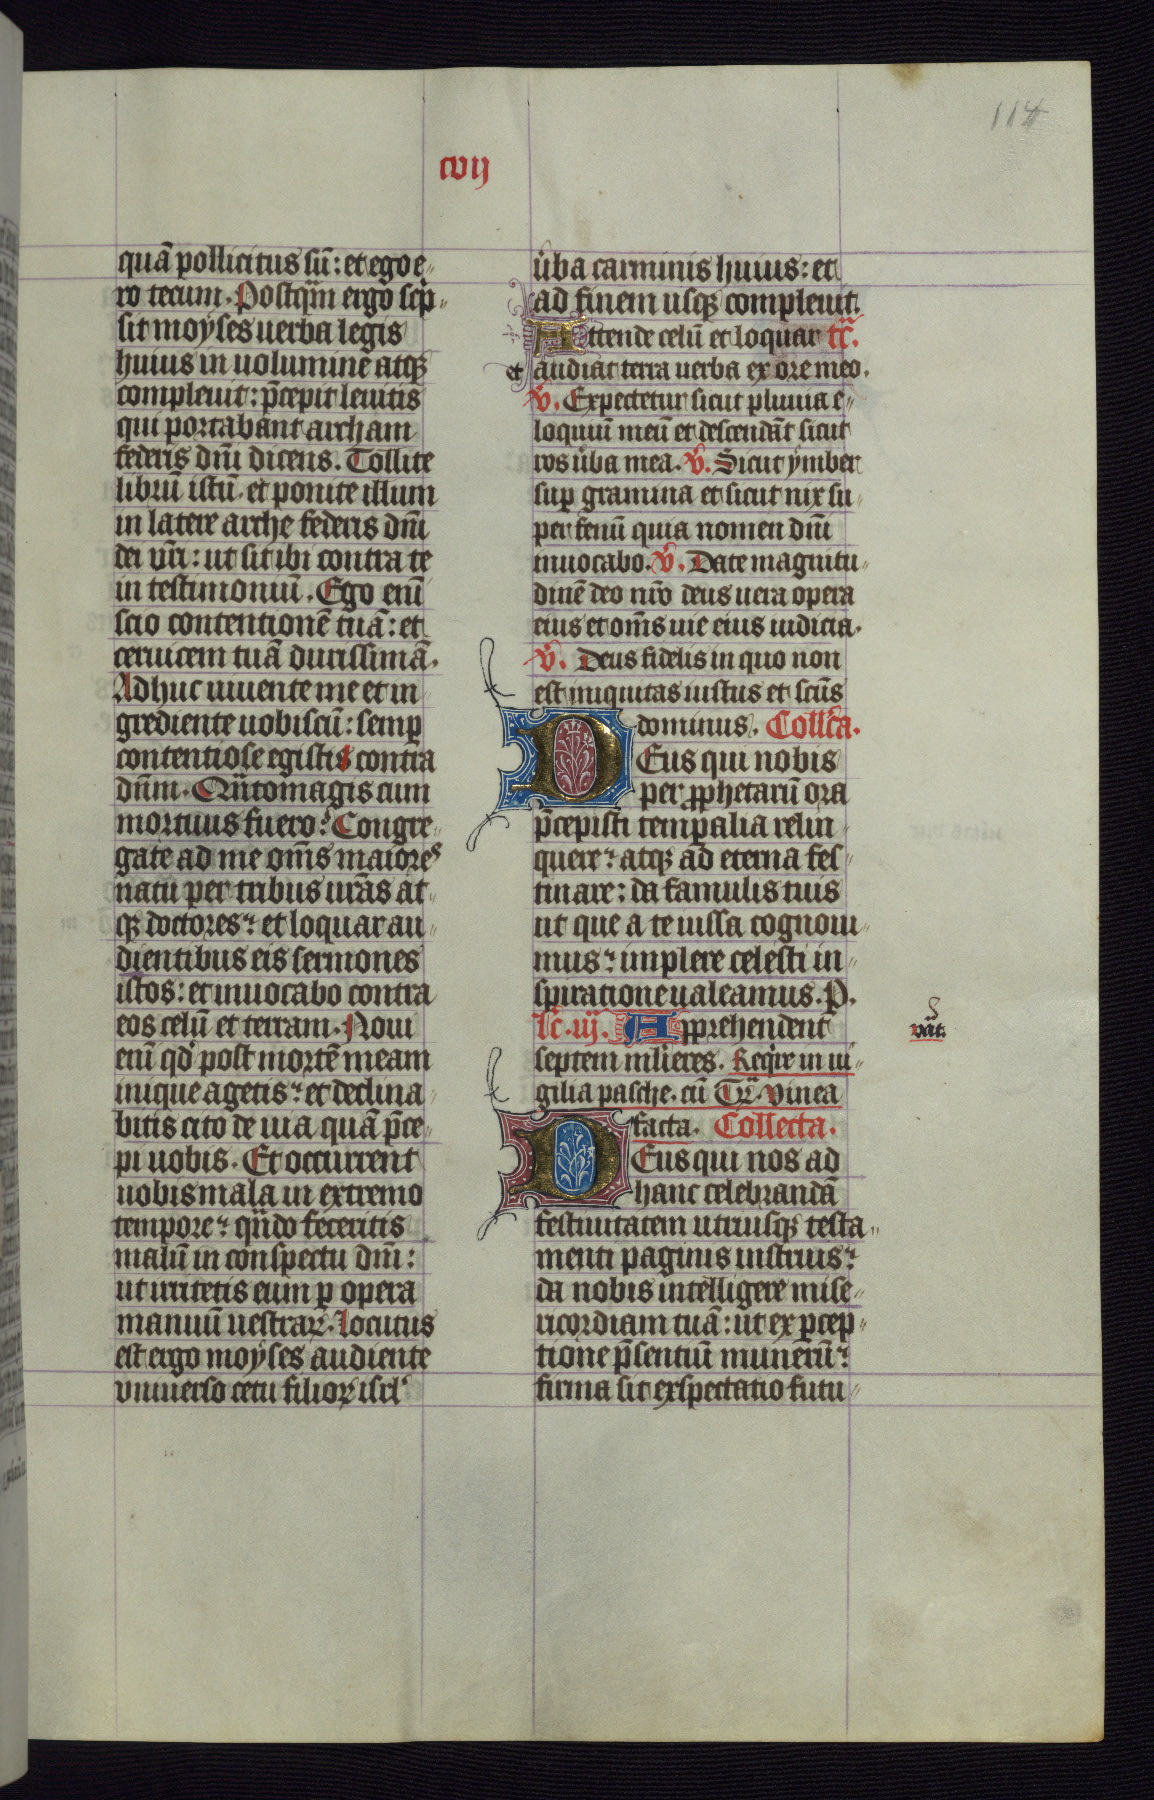 114
cvij
quā pollicitus sū: et ego e„
ro tecum. Postqͫm ergo scͥp„
sit moyses uerba legis
huius in uolumine atqꝫ
compleuit: p̄cepit leuitis
qui portabant archam
federis dn̄i dicens. Tollite
librū istū. et ponite illum
in latere arche federis dn̄i
dei vr̄i: ut sit ibi contra te
in testimoniū. Ego eni̅
scio contentionē tuā: et
ceruicem tuā durissimā.
Adhuc uiuente me et in
grediente uobiscū: semꝑ
contentiose egistis contra
dn̄m. Quātomagis cum
mortuus fuero? Congre„
gate ad me om̄s maiores
natu per tribus ur̄as at„
qꝫ doctores: et loquar au„
dientibus eis sermones
istos: et inuocabo contra
eos celū et terram. Noui
enī qd̓ post mortē meam
inique agetis: et declina„
bitis cito de uia quā p̄ce„
pi uobis. Et occurrent
uobis mala in extremo
tempore: qn̄do feceritis
malū in conspectu dn̄i:
ut irritetis eum ꝑ opera
manuū uestraꝝ. Locutus
est ergo moyses audiente
vniuerso cetu filioꝝ isrl̓
u̓ba carminis huius: et
ad finem usqꝫ compleuit.
Attende celū et loquar tr̄c.
et audiat terra uerba ex ore meo.
V̓. Expectetur sicut pluuia e„
loquiū meū et descendāt sicut
ros u̓ba mea. V̓. Sicut ymber
suꝑ gramina et sicut nix su„
per fenū quia nomen dn̄i
inuocabo. V̓. Date magnitu„
dinē deo nr̄o deus uera opera
eius et om̄s uie eius iudicia.
V̓. Deus fidelis in quo non
est iniquitas iustus et scūs
dominus. Collc̄a.
DEus qui nobis
per ꝓphetarū ora
p̄cepisti temꝑalia relin„
quere: atqꝫ ad eterna fes„
tinare: da famulis tuis
ut que a te iussa cognoui„
mus: implere celesti in„
spiratione ualeamus. P.
Lc̄. iij. Apprehendent
septem mulieres. Req̓re in ui„
gilia pasche. cū Tr̄. vinea
facta. Collecta.
DEus qui nos ad
hanc celebrandā
festiuitatem utriusqꝫ testa„
menti paginis instruis:
da nobis intelligere mise„
ricordiam tuā: ut ex ꝑcep„
tione p̄sentiū munerū:
firma sit exspectatio futu„